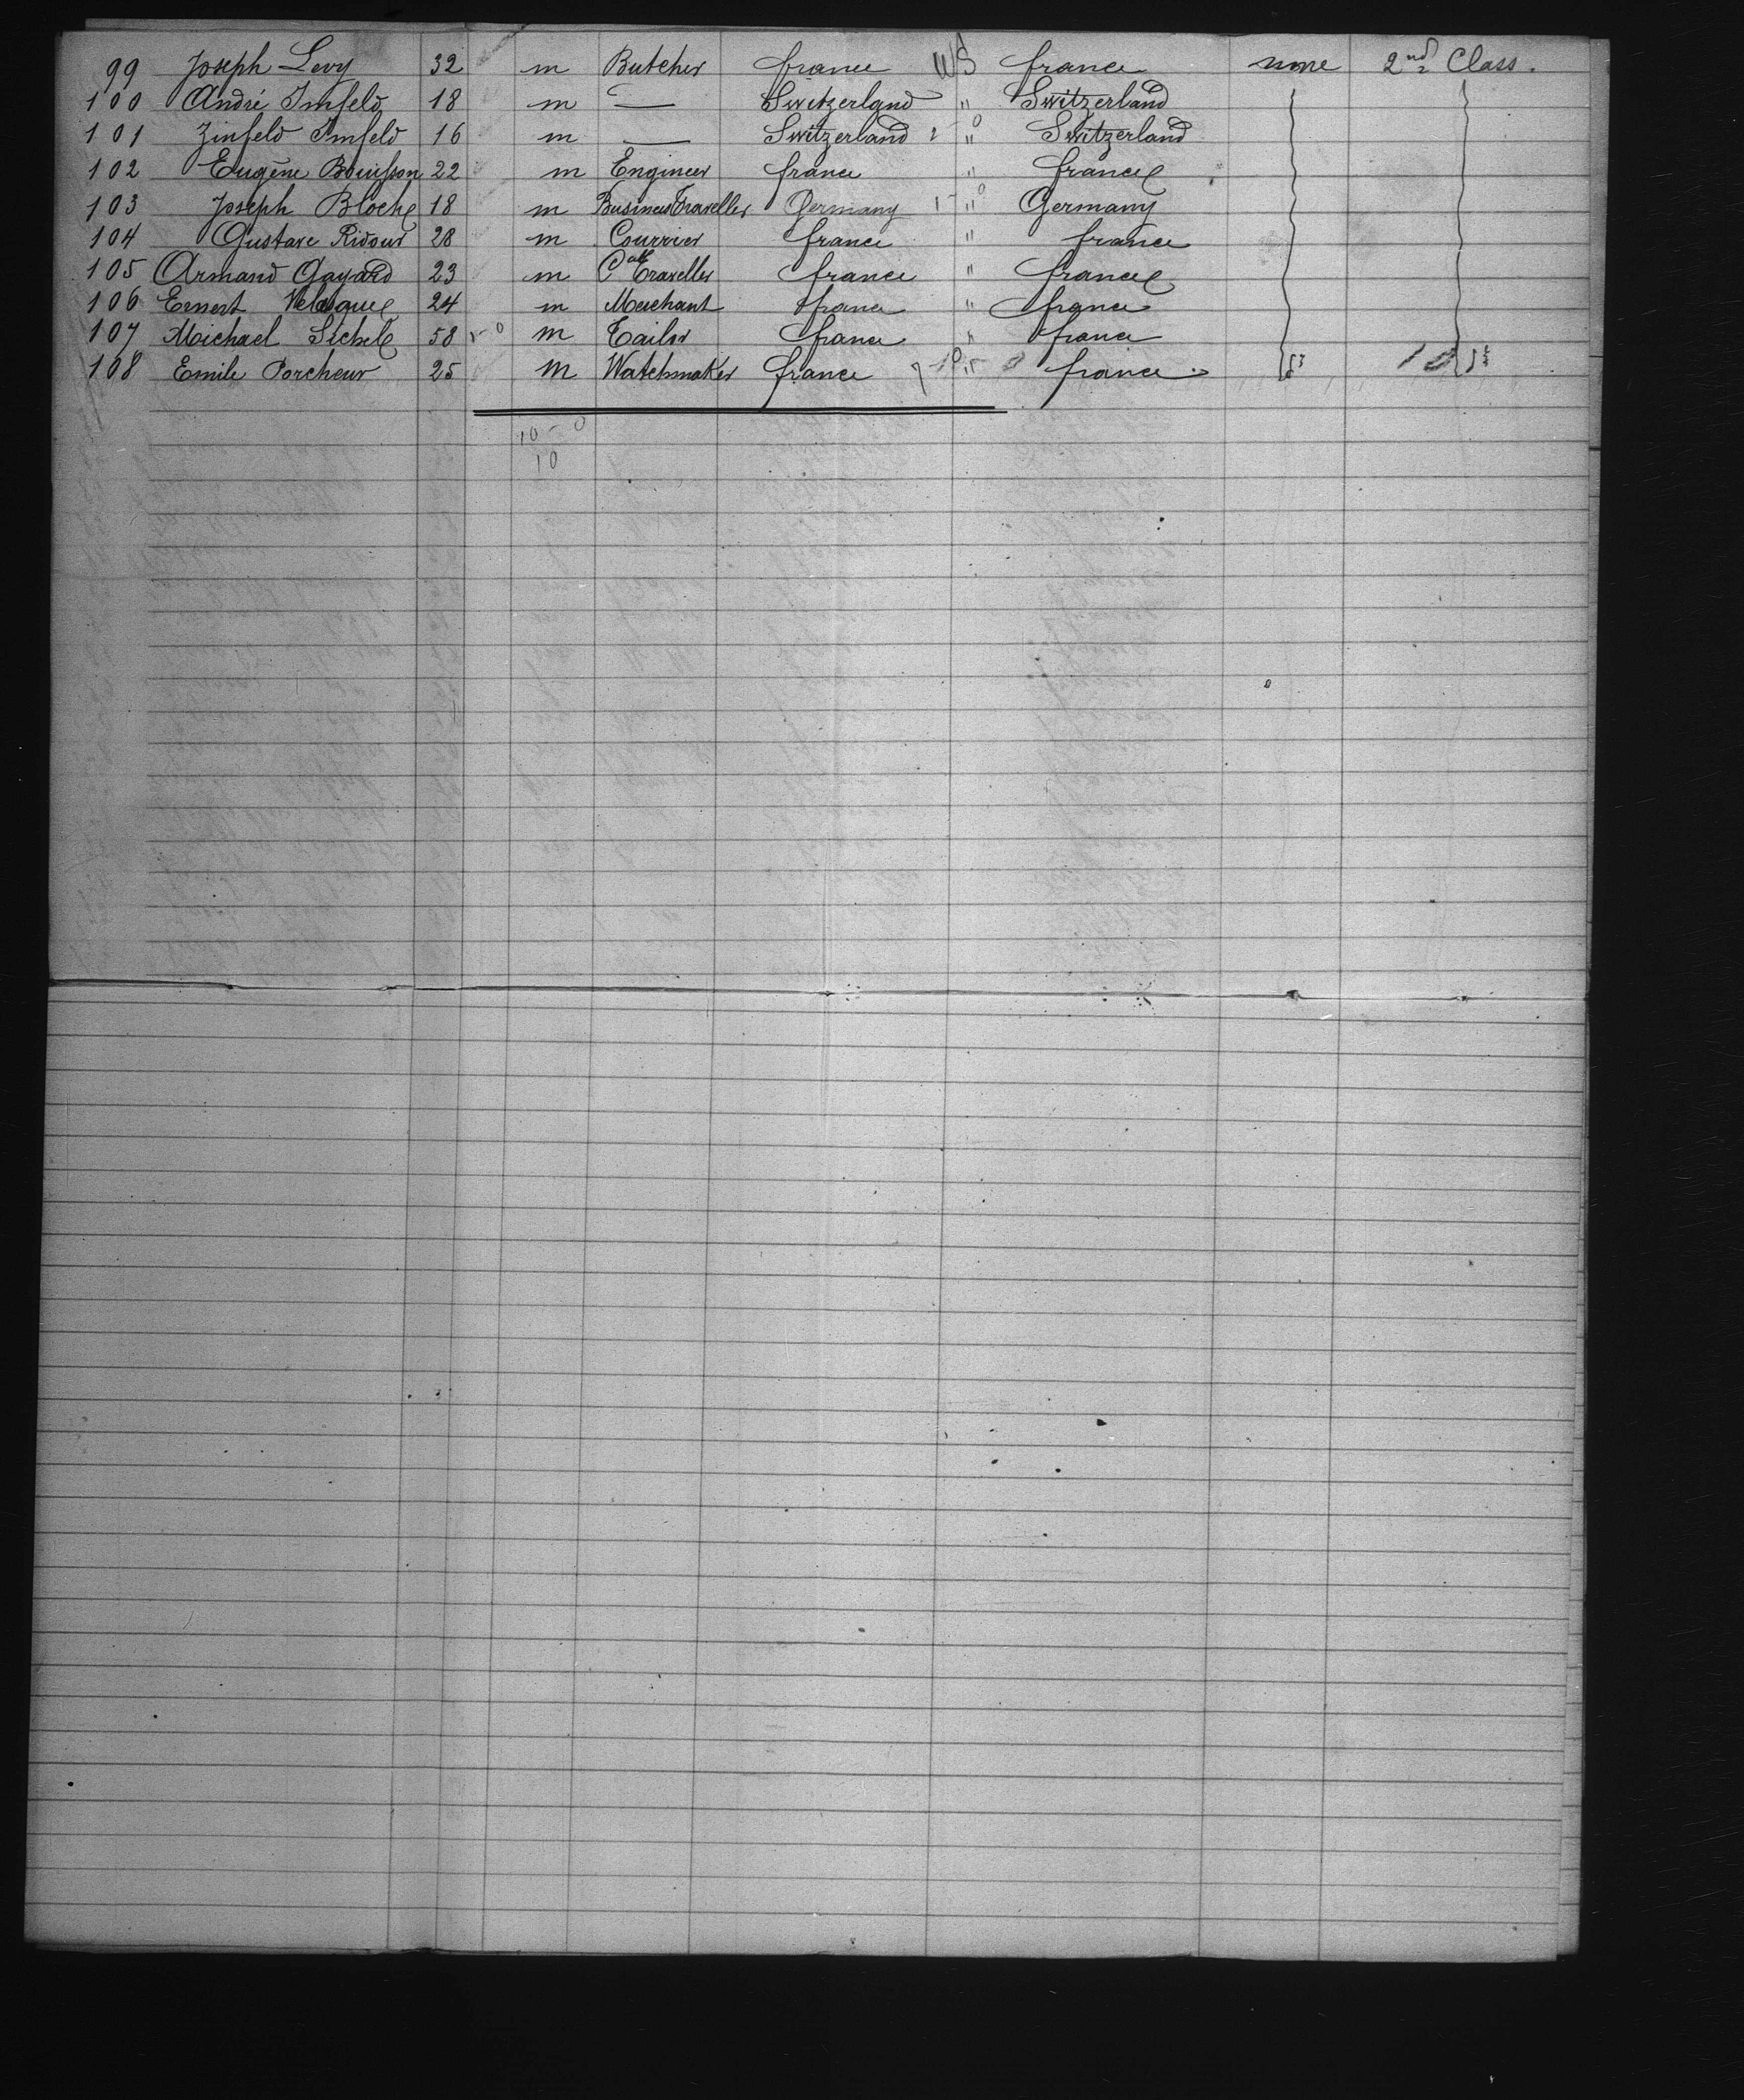 99 Joseph Levy 32 m Butcher france US france none 2nd Class.
100 André Imfeld 18 m — Switzerland " Switzerland
101 Zinfeld Imfeld 16 m — Switzerland 2-0 " Switzerland
102 Eugène Bouisson 22 m Engineer france " france
103 Joseph Bloche 18 m Business Traveller Germany 1-0 " Germany
104 Gustave Ridour 28 m Courrier france " france
105 Armand Gayard 23 m Traveller france " france
106 Ernest 24 m Merchant france " france
107 Michael Sichel 58 m Tailor france " france
108 Emile Porcheur 25 m Watchmaker france 7-0 " france
10-0
10